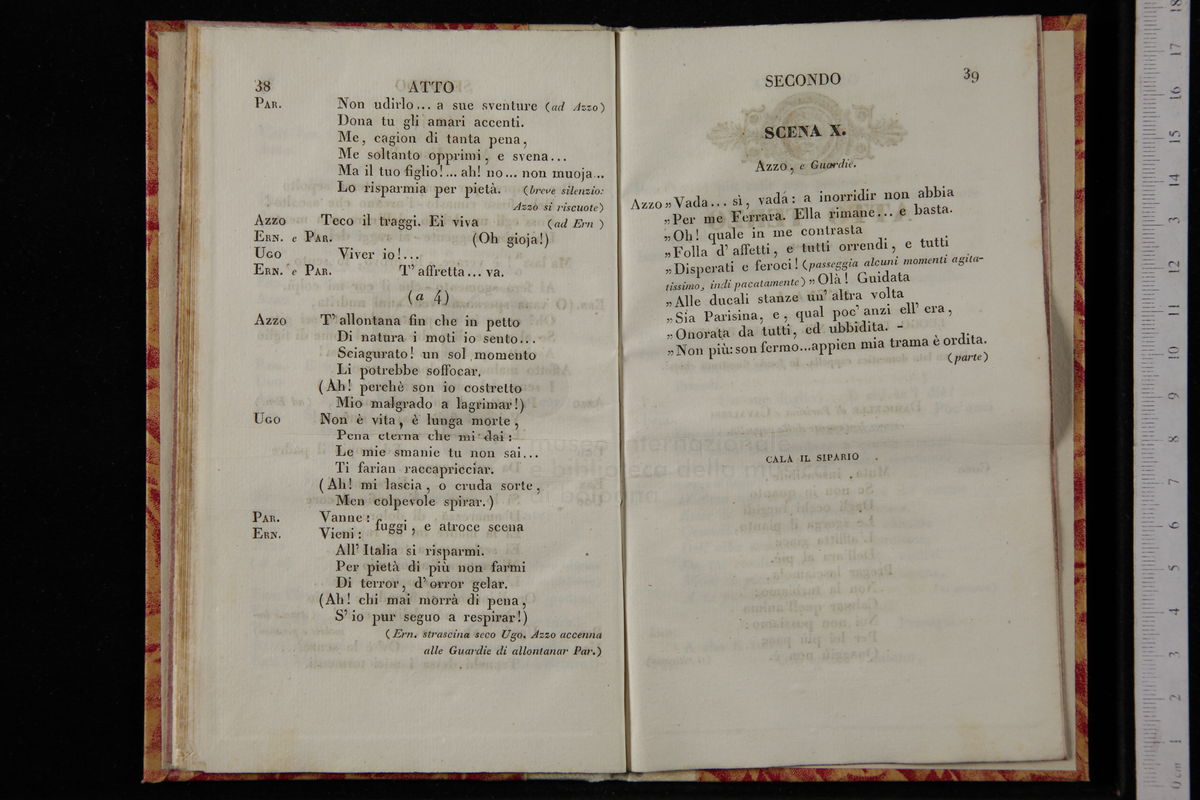 38
ATTO
PAR. Non udirlo... a sue sventure (ad Azzo)
Dona tu gli amari accenti.
Me, cagion di tanta pena,
Me soltanto opprimi, e svena...
Ma il tuo figlio!... ah! no... non muoja...
Lo risparmia per pietà. (breve silenzio:
Azzo si riscuote)
AZZO Teco il traggi. Ei viva (ad Ern )
ERN. e PAR. (Oh gioja!)
UGO Viver io!...
ERN. e PAR. T' affretta... va.
(a 4)
AZZO T' allontana fin che in petto
Di natura i moti io sento...
Sciagurato! un sol momento
Li potrebbe soffocar.
(Ah! perchè son io costretto
Mio malgrado a lagrimar!)
UGO Non è vita, è lunga morte,
Pena eterna che mi dai:
Le mie smanie tu non sai...
Ti farian raccapricciar.
(Ah! mi lascia, o cruda sorte,
Men colpevole spirar.)
PAR. Vanne:
fuggi, e atroce scena
ERN. Vieni:
All' Italia si risparmi.
Per pietà di più non farmi
Di terror, d' orror gelar.
(Ah! chi mai morrà di pena,
S' io pur seguo a respirar!)
(Ern. strascina seco Ugo. Azzo accenna
alle Guardie di allontanar Par.)
SECONDO
39
SCENA X.
AZZO, e Guardie.
AZZO „Vada... sì, vada: a inorridir non abbia
„Per me Ferrara. Ella rimane... e basta.
„Oh! quale in me contrasta
„Folla d' affetti, e tutti orrendi, e tutti
„Disperati e feroci! (passeggia alcuni momenti agita-
tissimo, indi pacatamente) „Olà! Guidata
„Alle ducali stanze un' altra volta
„Sia Parisina, e, qual poc' anzi ell' era,
„Onorata da tutti, ed ubbidita. -
„Non più: son fermo...appien mia trama è ordita.
(parte)
CALA IL SIPARIO
museo internazionale
e biblioteca della musica
di bologna
0 cm 1 2 3 4 5 6 7 8 9 10 11 12 13 14 15 16 17 18